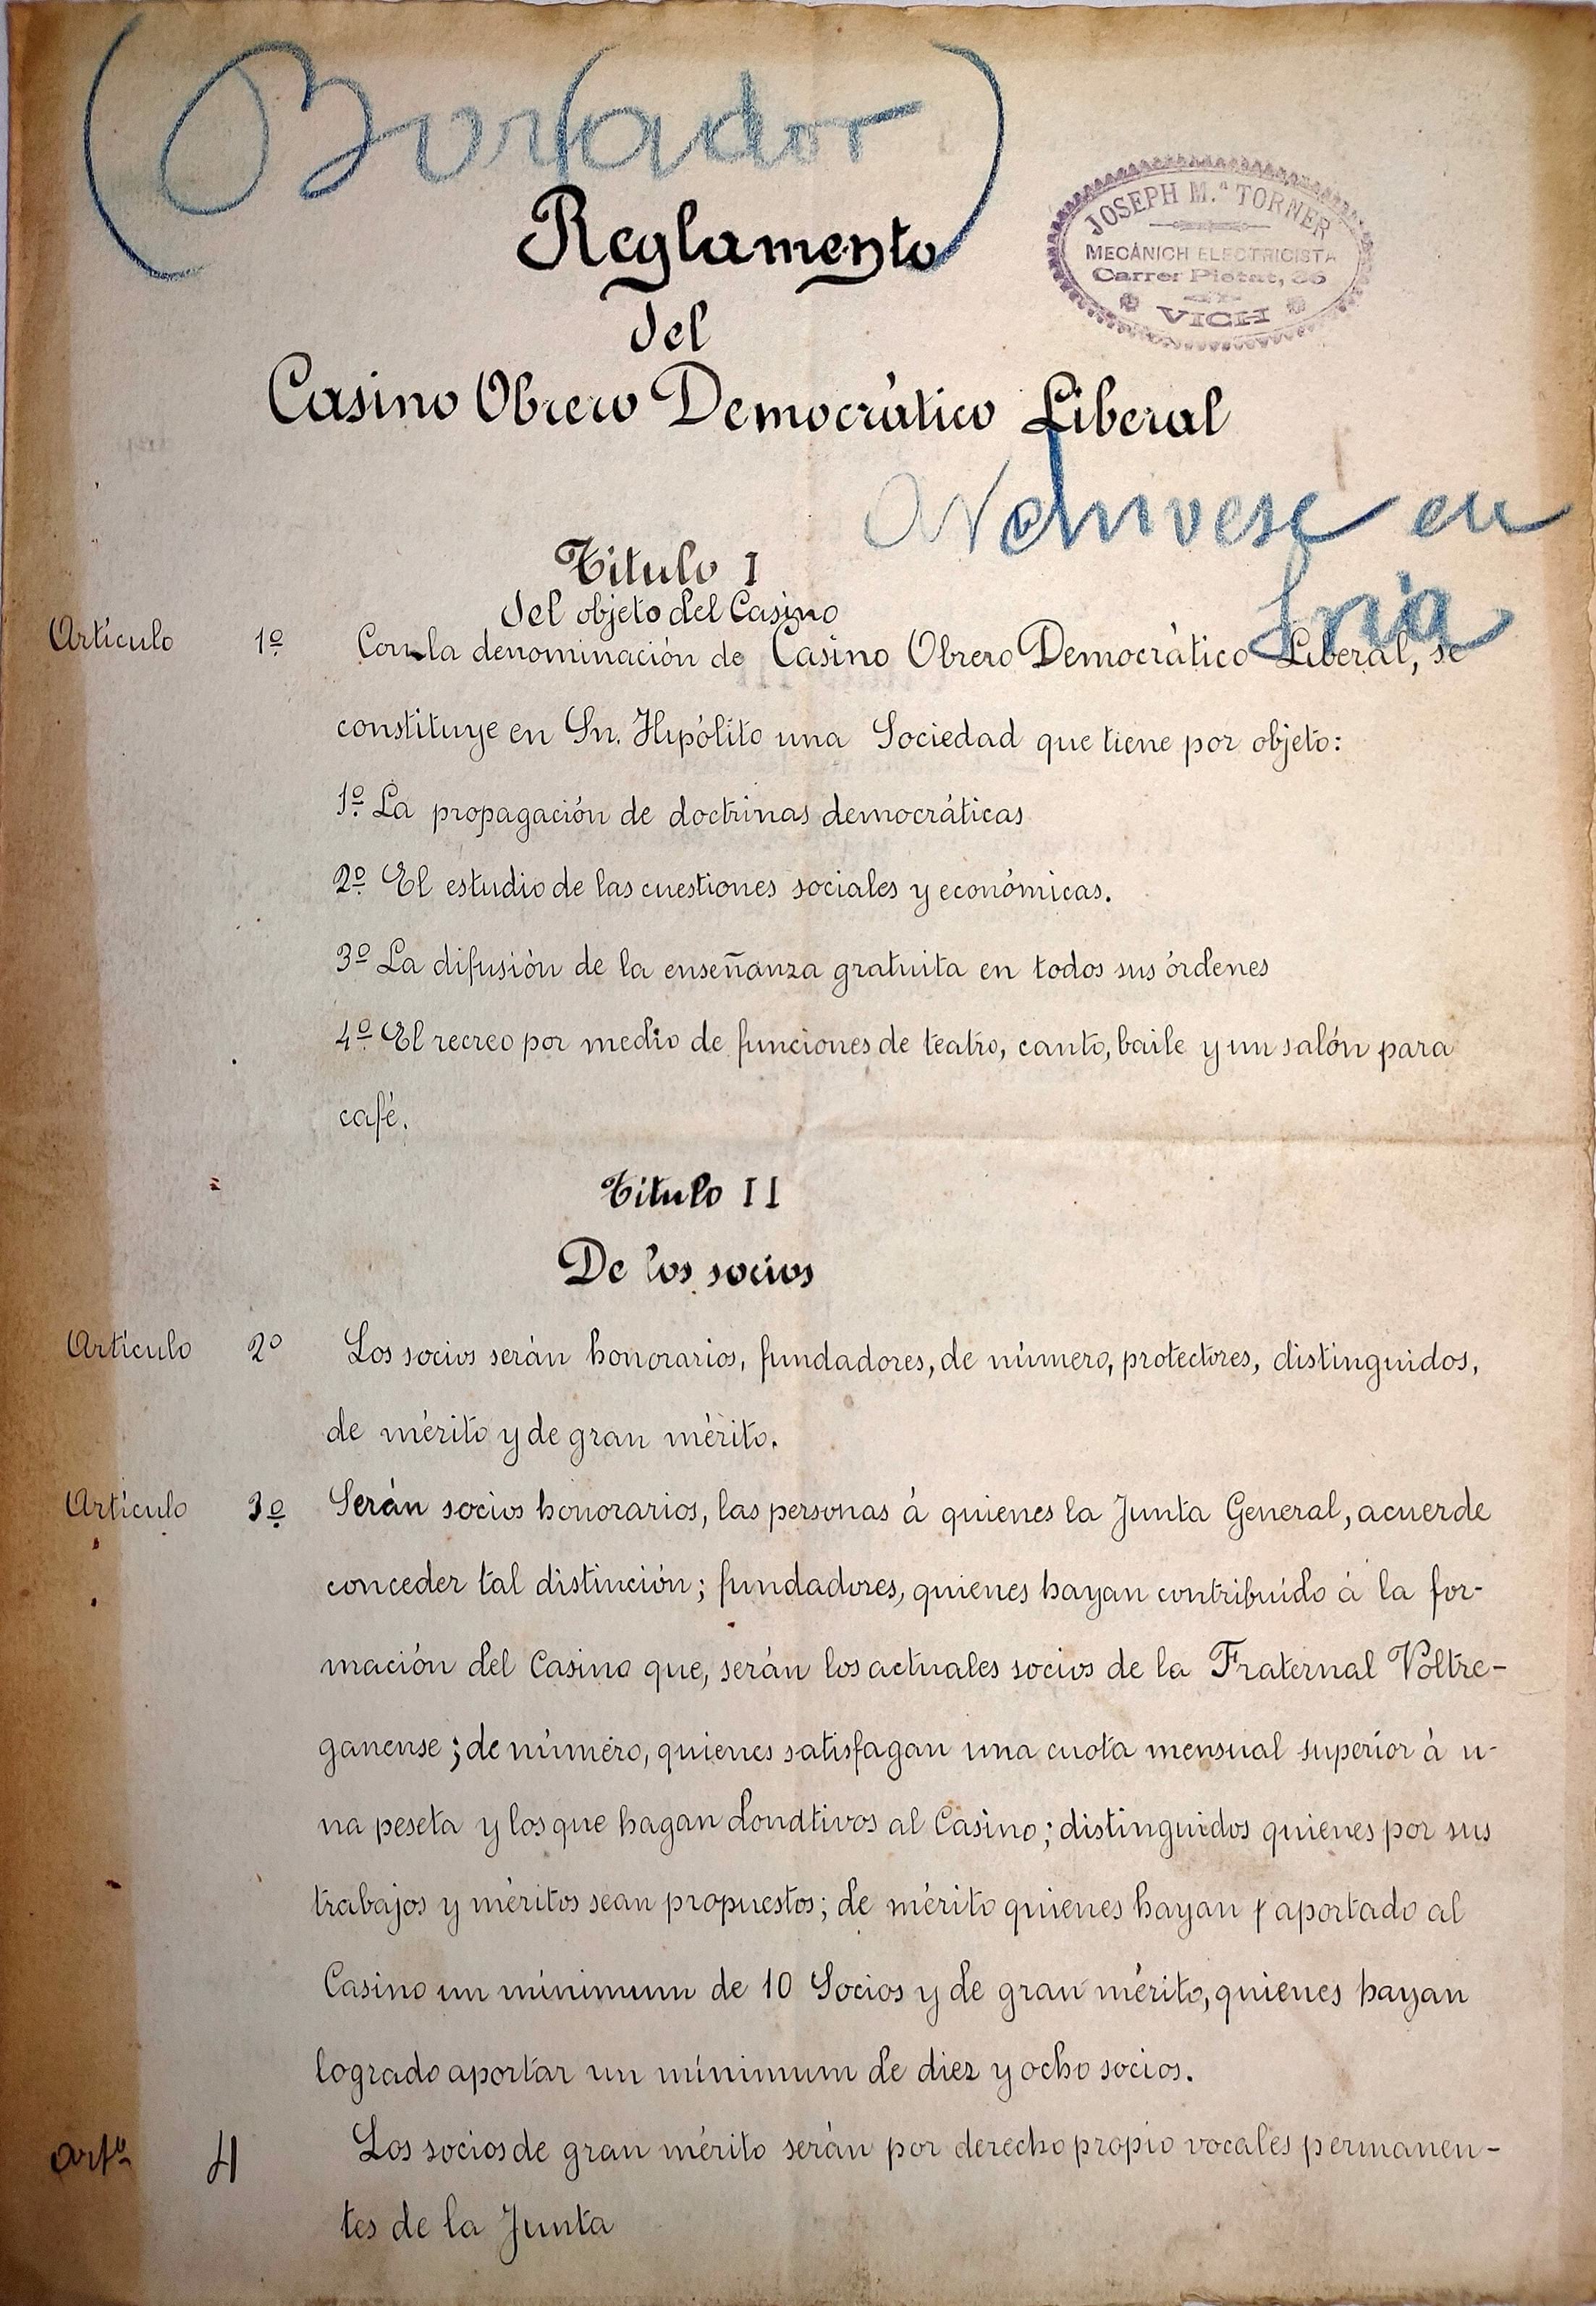 (Borrador)
JOSEPH M.ª TORNER
MECÀNICH ELECTRICISTA
Carrer Pietat, 36
VICH
Reglamento
del
Casino Obrero Democrático Liberal
Archivese en
Sria
Título I
del objeto del Casino
Artículo 1º Con la denominación de Casino Obrero Democrático Liberal, se
constituye en Sn. Hipólito una Sociedad que tiene por objeto:
1º La propagación de doctrinas democráticas
2º El estudio de las cuestiones sociales y económicas.
3º La difusión de la enseñanza gratuita en todos sus órdenes
4º El recreo por medio de funciones de teatro, canto, baile y un salón para
café.
Título II
De los socios
Artículo 2º Los socios serán honorarios, fundadores, de número, protectores, distinguidos,
de mérito y de gran mérito.
Artículo 3º Serán socios honorarios, las personas á quienes la Junta General, acuerde
conceder tal distinción; fundadores, quienes hayan contribuído á la for-
mación del Casino que, serán los actuales socios de la Fraternal Voltre-
ganense; de número, quienes satisfagan una cuota mensual superior á u-
na peseta y los que hagan donativos al Casino; distinguidos quienes por sus
trabajos y méritos sean propuestos; de mérito quienes hayan aportado al
Casino un mínimum de 10 Socios y de gran mérito, quienes hayan
logrado aportar un mínimum de diez y ocho socios.
Artº 4 Los socios de gran mérito serán por derecho propio vocales permanen-
tes de la Junta